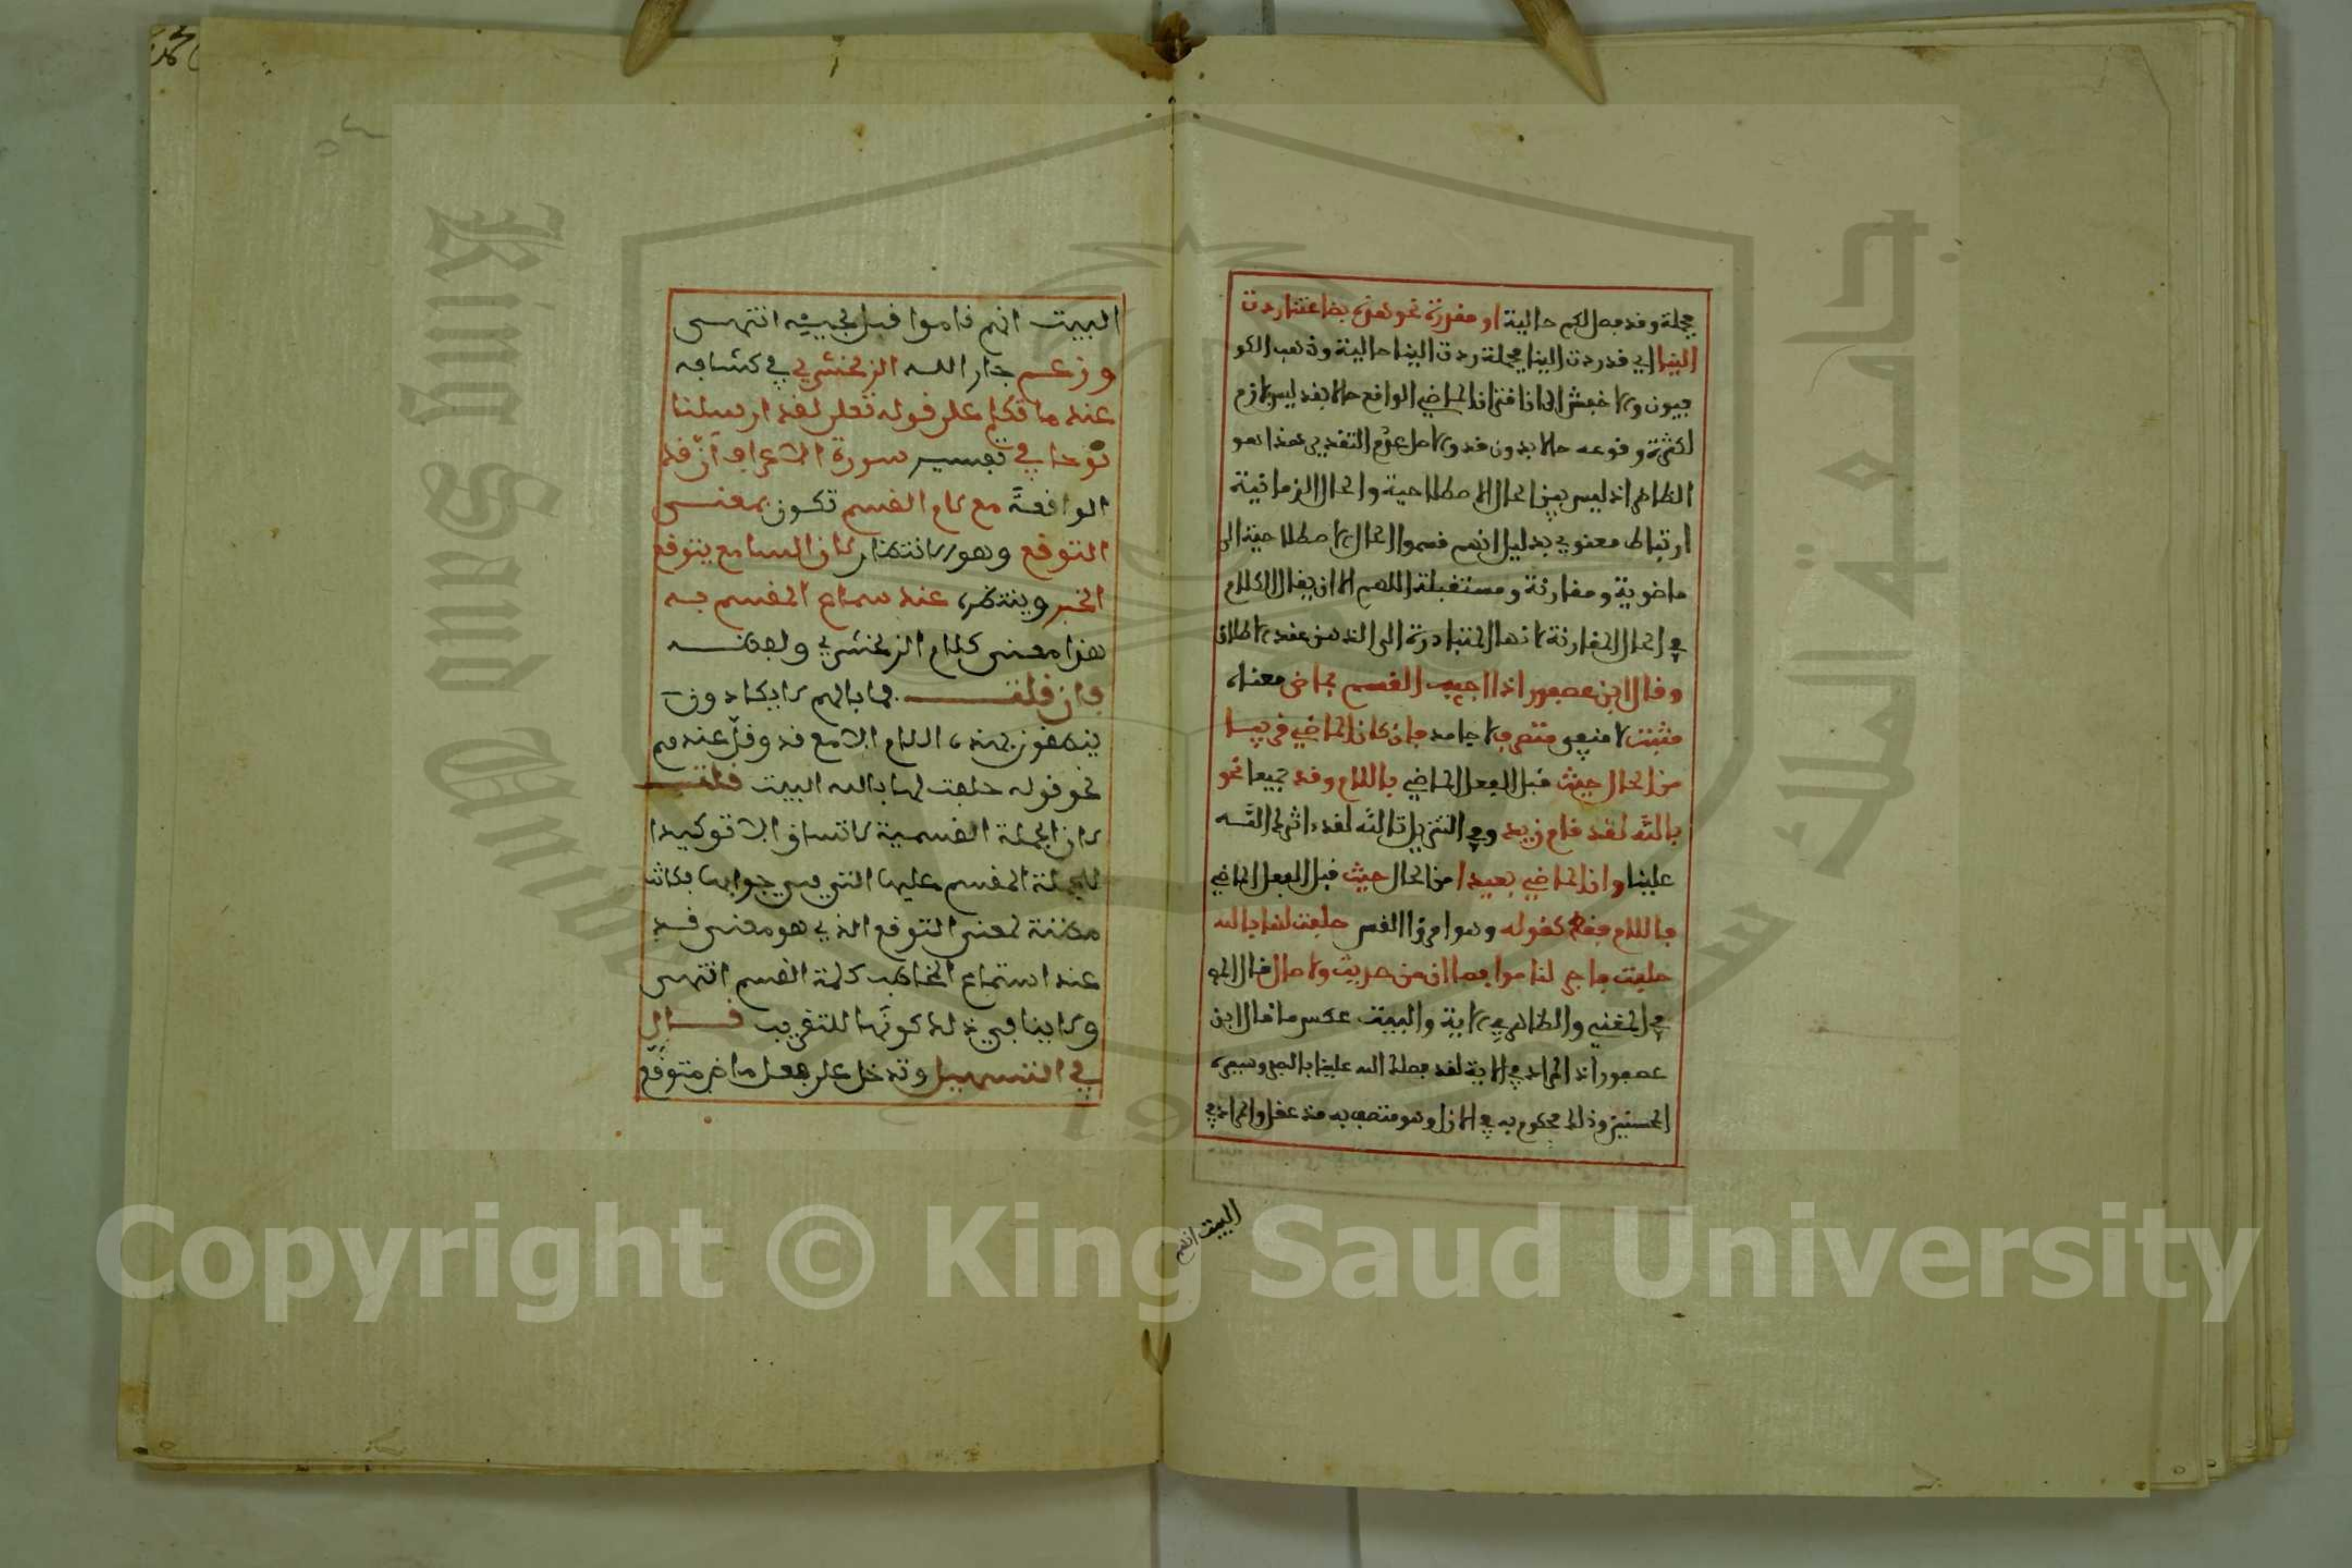 فجملة وقد فصل لكم حالية او مقدرة نحو هذه بضاعتنا ردت
الينا اي قد ردت الينا فجملة ردت الينا حالية وذهب الكو
فيون والاخفش الى ان اقتران الماضي الواقع حالا بقد ليس بلازم
لكثرة وقوعه حالا بدون قد والاصل عدم التقدير هذا هو
الظاهر اذ ليس بين الحال الاصطلاحية والحال الزمانية
ارتباط معنوي بدليل انهم قسموا الحال الاصطلاحية الى
ماضوية ومقارنة ومستقبلة اللهم الا ان يقال الكلام
في الحال المقارنة لانها المتبادرة الى الذهن عند الاطلاق
وقال ابن عصفور اذا اجيب القسم بماض معناه
مثبت لا منفي متصرف لا جامد فان كان الماضي قريبا
من الحال جيئ قبل الفعل الماضي باللام وقد جميعا نحو
بالله لقد قام زيد وفي التنزيل تالله لقد ءاثرك الله
علينا وان كان الماضي بعيدا من الحال جيئ قبل الفعل الماضي
باللام فقط كقوله وهو امرؤ القيس حلفت لها بالله
حلفة فاجر لناموا فما ان من حديث ولا صال قال
في المغني والظاهر في الاية والبيت عكس ما قال ابن
عصفور اذ المراد في الاية لقد فضلك الله علينا بالصبر وسيرة
المحسنين وذلك محكوم به في الازل وهو متصف به مذ عقل والمراد في
البيت انهم
البيت انهم ناموا قبل مجيئه انتهى
وزعم جار الله الزمخشري في كشافه
عند ما تكلم على قوله تعلى لقد ارسلنا
نوحا في تفسير سورة الاعراف ان قد
الواقعة مع لام القسم تكون بمعنى
التوقع وهو الانتظار لان السامع يتوقع
الخبر وينتظره عند سماع المقسم به
هذا معنى كلام الزمخشري ولفظه
فان قلت فما بالهم لا يكادون
ينطقون بهذه اللام الا مع قد وقل عندهم
نحو قوله حلفت لها بالله البيت قلت
لان الجملة القسمية لا تساق الا توكيدا
للجملة المقسم عليها التي هي جوابها فكانت
مظنة لمعنى التوقع الذي هو معنى قد
عند استماع المخاطب كلمة القسم انتهى
ولا ينافي ذلك كونها للتقريب قال
في التسهيل وتدخل على فعل ماض متوقع
Copyright © King Saud University